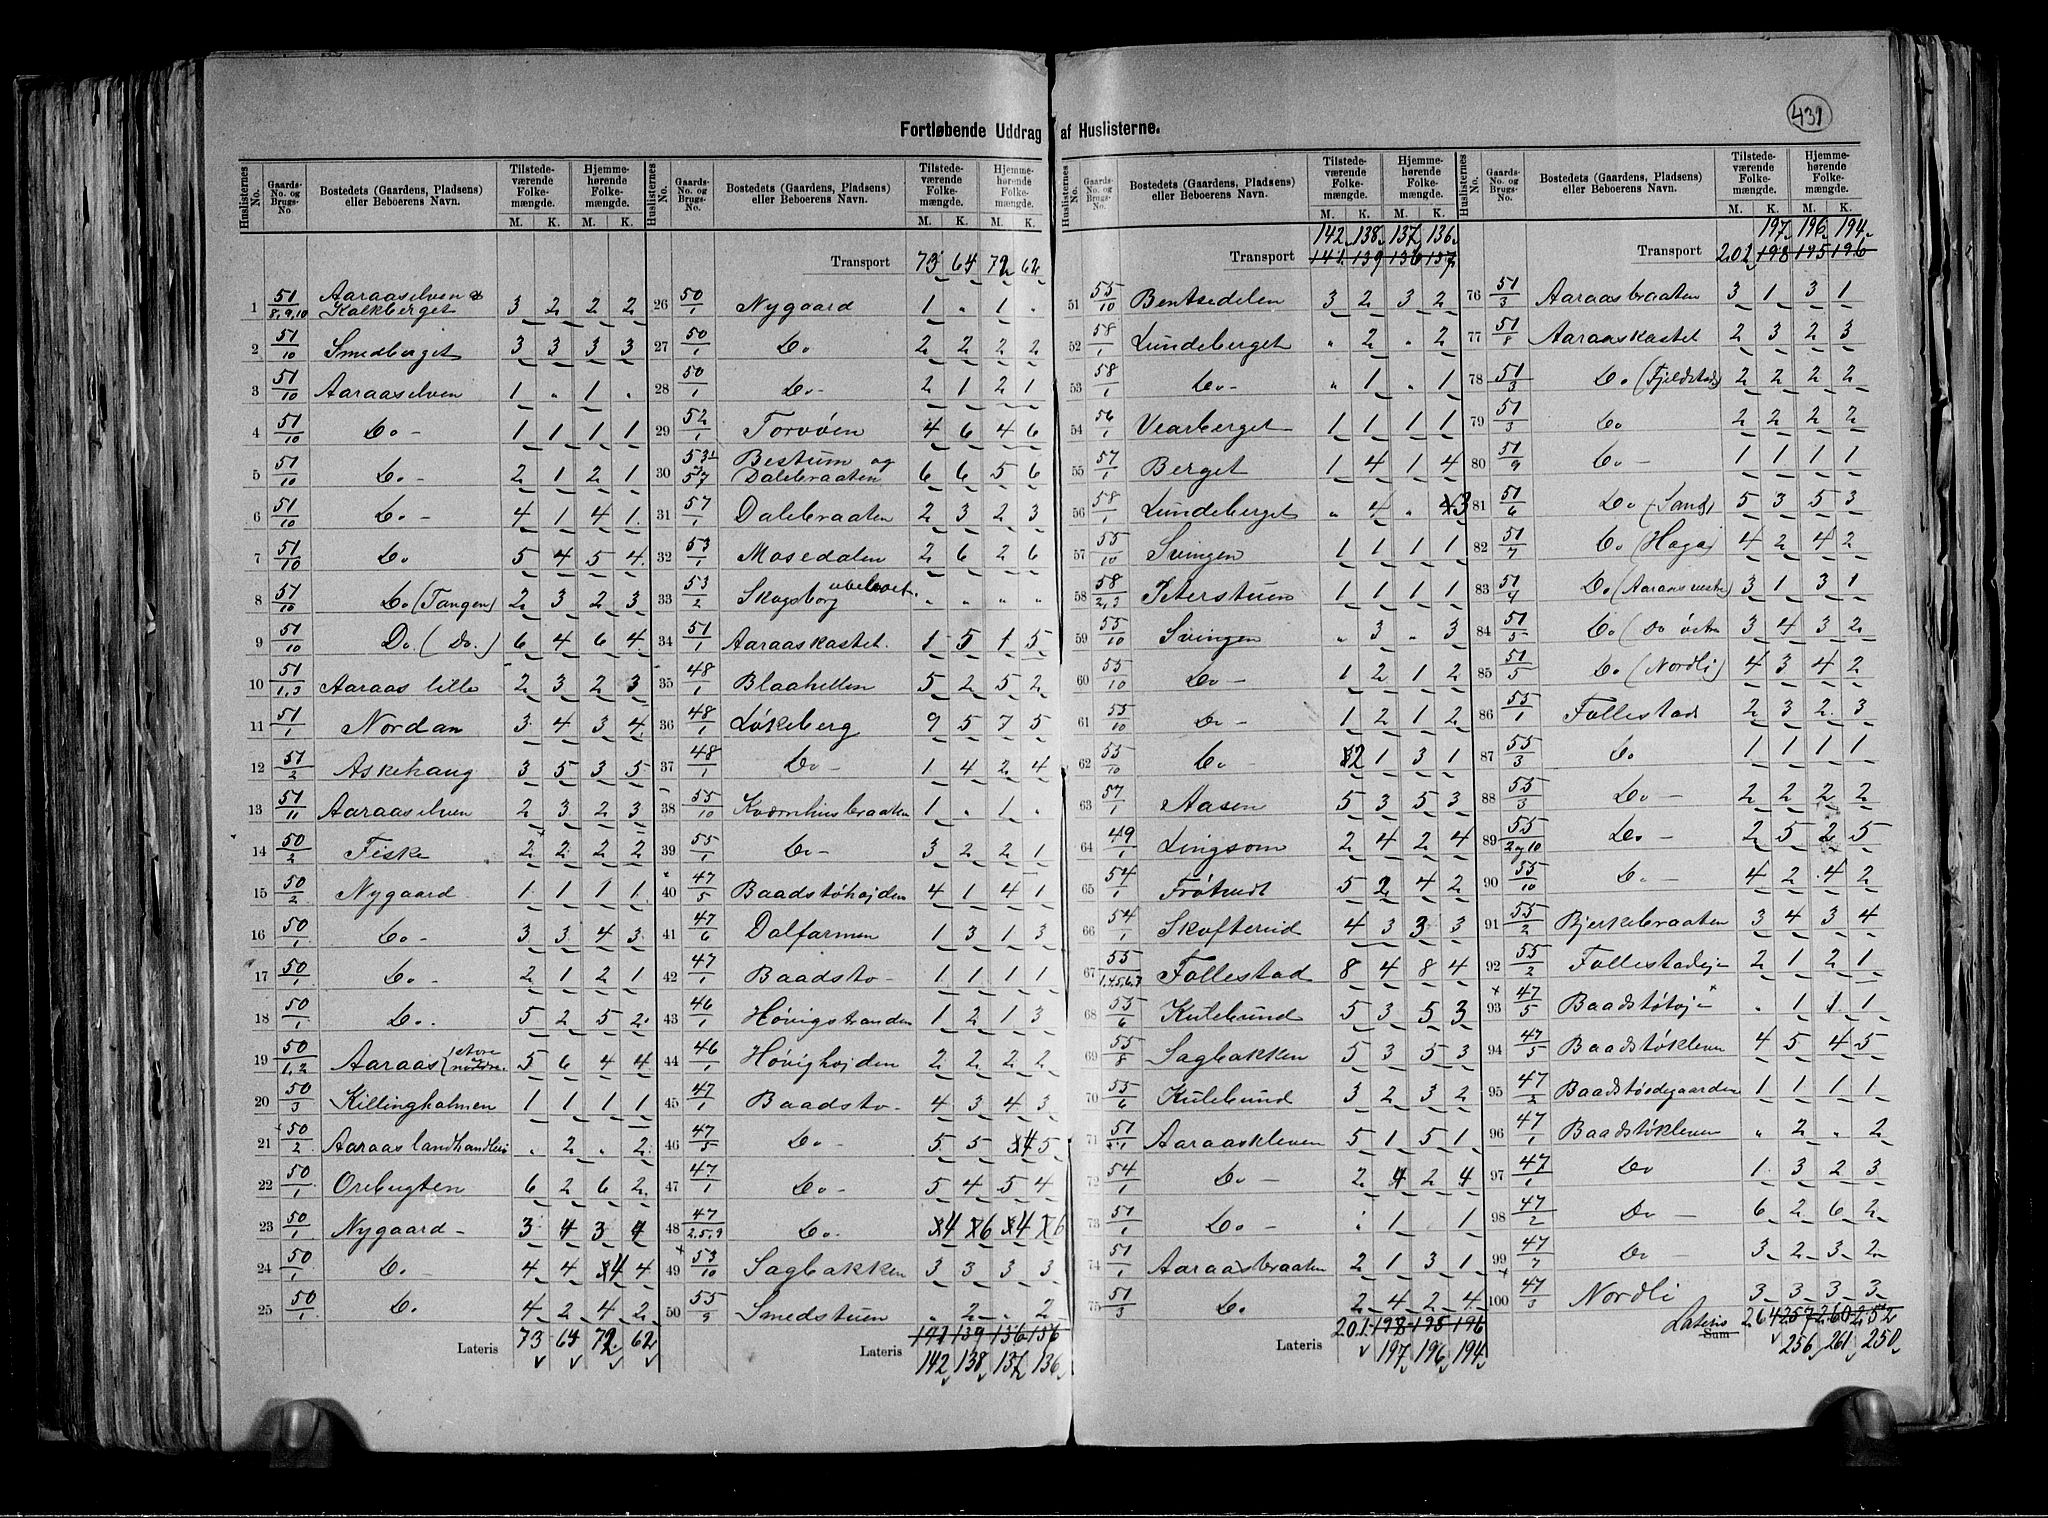 431
Fortløbende Uddrag af Huslisterne.
Huslisternes No. Gaards-No. og Brugs-No. Bostedets (Gaardens, Pladsens) eller Beboerens Navn. Tilstedeværende Folkemængde. M. K. Hjemmehørende Folkemængde. M. K.
1 51/8,9,10 Aaraaselven & Kalkberget 3 2 2 2
2 51/10 Smedberget 3 3 3 3
3 51/10 Aaraaselven 1 " 1 "
4 51/10 Do - 1 1 1 1
5 51/10 Do - 2 1 2 1
6 51/10 Do - 4 1 4 1
7 51/10 Do 5 4 5 4
8 51/10 Do (Tangen) 2 3 2 3
9 51/10 Do. (Do.) 6 4 6 4
10 51/1,3 Aaraas lille 2 3 2 3
11 51/1 Nordan 3 4 3 4
12 51/2 Askehaug 3 5 3 5
13 51/11 Aaraaselven 2 3 2 3
14 50/2 Fiske 2 2 2 2
15 50/2 Nygaard 1 1 1 1
16 50/1 Do - 3 3 4 3
17 50/1 Do. 2 1 2 1
18 50/1 Do. 5 2 5 2
19 50/1,2 Aaraas (store og nordre) 5 6 4 4
20 50/3 Killingholmen 1 1 1 1
21 50/2 Aaraas landhandleri " 2 " 2
22 50/1 Orebugten 6 2 6 2
23 50/1 Nygaard - 3 4 3 4
24 50/1 Do. 4 4 4 4
25 50/1 Do. 4 2 4 2
Lateris 73 64 72 62
Huslisternes No. Gaards-No. og Brugs-No. Bostedets (Gaardens, Pladsens) eller Beboerens Navn. Tilstedeværende Folkemængde. M. K. Hjemmehørende Folkemængde. M. K.
Transport 73 64 72 62
26 50/1 Nygaard 1 " 1 "
27 50/1 Do. 2 2 2 2
28 50/1 Do - 2 1 2 1
29 52/1 Torvøen 4 6 4 6
30 Bestum og Dalebraaten 6 6 5 6
31 57/1 Dalebraaten 2 3 2 3
32 53/1 Mosedalen 2 6 2 6
33 53/2 Skogsborg ubeboet. " " " "
34 51/1 Aaraaskastet. 1 5 1 5
35 48/1 Blaahellen 5 2 5 2
36 48/1 Løkeberg 9 5 7 5
37 48/1 Do - 1 4 2 4
38 55/10 Kværnhusbraaten 1 " 1 "
39 55/1 Do - 3 2 2 1
40 47/5 Baadstøhøjden 4 1 4 1
41 47/6 Dalfarmen 1 3 1 3
42 47/1 Baadstø - 1 1 1 1
43 46/1 Høvigstranden 1 2 1 3
44 46/1 Høvighøjden 2 2 2 2
45 47/1 Baadstø - 4 3 4 3
46 47/5 Do - 5 5 4 5
47 47/1 Do - 5 4 5 4
48 47/2,5,9 Do. 4 6 4 6
49 53/10 Sagbakken 3 3 3 3
50 55/9 Smedstuen " 2 " 2
Lateris 141 139 136 136
142 138 137 136
Huslisternes No. Gaards-No. og Brugs-No. Bostedets (Gaardens, Pladsens) eller Beboerens Navn. Tilstedeværende Folkemængde. M. K. Hjemmehørende Folkemængde. M. K.
142 138 137 136
Transport 141 139 136 137
51 55/10 Bentsedelen 3 2 3 2
52 58/1 Lundeberget " 2 " 2
53 58/1 Do - " 1 " 1
54 56/1 Vearberget 1 1 1 1
55 57/1 Berget 1 4 1 4
56 58/1 Lundeberget " 4 " 3
57 55/10 Svingen 1 1 1 1
58 58/2,3 Peterstuen 1 1 1 1
59 55/10 Svingen " 3 " 3
60 55/10 Do - 1 2 1 2
61 55/10 Do - 1 2 1 2
62 55/10 Do - 2 1 3 1
63 57/1 Aasen 5 3 5 3
64 49/1 Lingsom 2 4 2 4
65 54/1 Frötvedt 5 2 4 2
66 54/1 Skofterud 4 3 3 3
67 55/1,4,5,6,7 Follestad 8 4 8 4
68 55/6 Kulebund 5 3 5 3
69 55/8 Sagbakken 5 3 5 3
70 55/6 Kulebund 3 2 3 2
71 51/1 Aaraaskleven 5 1 5 1
72 54/1 Do - 2 4 2 4
73 51/1 Do - " 1 1
74 51/1 Aaraasbraaten 2 1 3 1
75 51/3 Do. 2 4 2 4
Lateris 201 198 195 196
197 196 194
Huslisternes No. Gaards-No. og Brugs-No. Bostedets (Gaardens, Pladsens) eller Beboerens Navn. Tilstedeværende Folkemængde. M. K. Hjemmehørende Folkemængde. M. K.
197 196 194
Transport 201 198 195 196
76 51/3 Aaraasbraaten 3 1 3 1
77 51/8 Aaraaskastet 2 3 2 3
78 51/3 Do (Fjeldstad) 2 2 2 2
79 51/3 Do 2 2 2 2
80 51/9 Do - 1 1 1 1
81 51/6 Do (Sand) 5 3 5 3
82 51/7 Do (Haga) 4 2 4 2
83 51/4 Do (Aaraas vestre) 3 1 3 1
84 51/5 Do (Do østre 3 4 3 2
85 51/5 Do (Nordli) 4 3 4 2
86 55/1 Follestad 2 3 2 3
87 55/3 Do 1 1 1 1
88 55/3 Do - 2 2 2 2
89 55/2 og 10 Do - 2 5 2 5
90 55/10 Do - 4 2 4 2
91 55/2 Bjerkebraaten 3 4 3 4
92 55/2 Follestadeje 2 1 2 1
93 47/5 Baadstøhøj " 1 1 1
94 47/5 Baadstøkleven 4 5 4 5
95 47/2 Baadstødegaarden 1 1 1 1
96 47/1 Baadstøkleven " 2 " 2
97 47/1 Do 1 3 2 3
98 47/2 Do - 6 2 6 2
99 47/7 Do - 3 2 3 2
100 47/3 Nordli 3 3 3 3
Lateris Sum 264 257 260 252
256 261 250